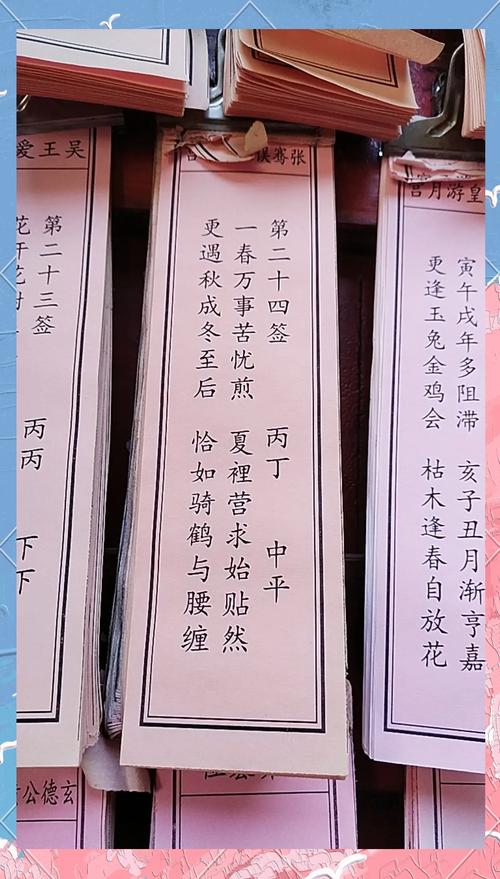 皇游月宫
寅午戌年多阻滞 亥子丑月渐亨嘉
更逢玉兔金鸡会 枯木逢春自放花
张骞误
第二十四签 丙丁 中平
一春万事苦忧煎 夏裡营求始贴然
更遇秋成冬至后 恰如骑鹤与腰缠
吴王爱
第二十三签 丙丙 下下
花开花
玄德公